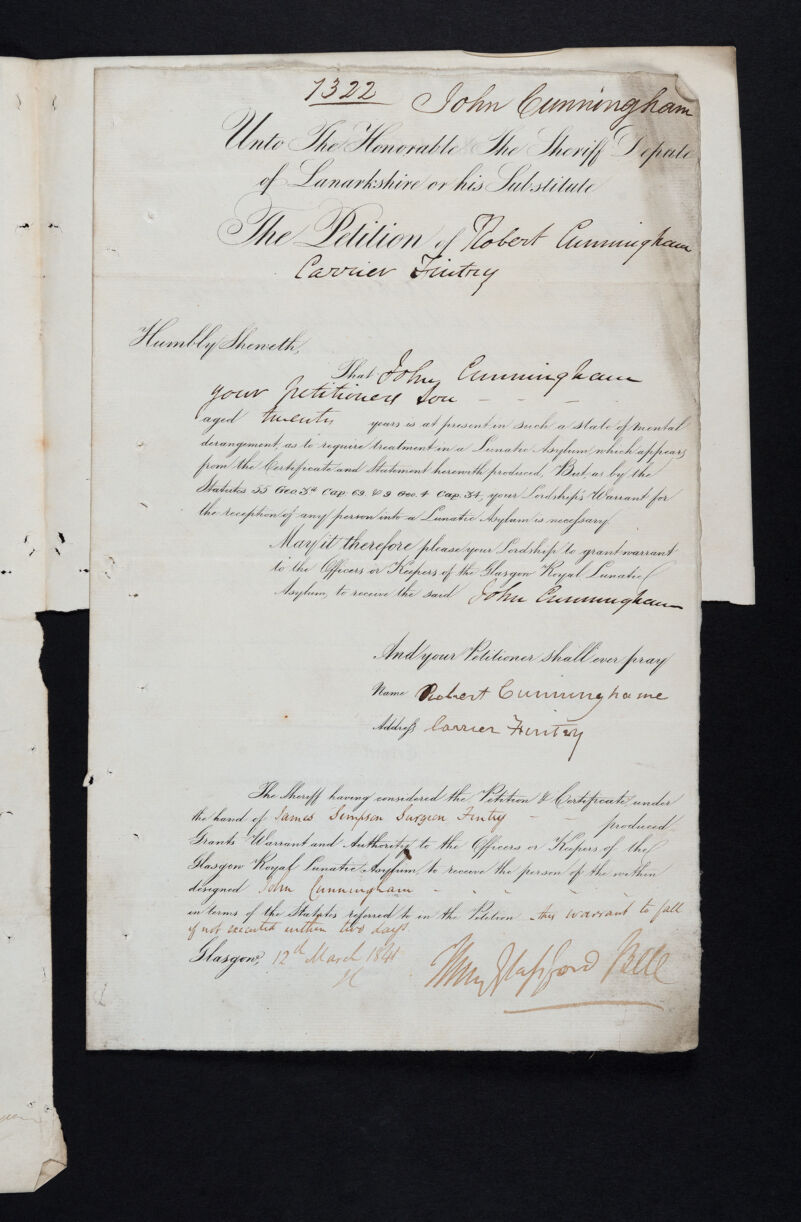 1322 John Cunningham
Unto The Honorable The Sheriff Depute
of Lanarkshire or his Substitute
The Petition of Robert Cunningham
Carrier Fintry
Humbly Sheweth,
That John Cunningham
your petitioners Son - - -
aged twenty years is at present in such a state of mental
derangement, as to require treatment in a Lunatic Asylum, which appears
from the Certificate and Statement herewith produced, But, as by the
Statutes 55 Geo. 3d Cap. 69. & 9 Geo. 4 Cap. 34, your Lordship's Warrant for
the reception of any person into a Lunatic Asylum is necessary
May it therefore please your Lordship to grant warrant
to the Officers or Keepers of the Glasgow Royal Lunatic
Asylum, to receive the said John Cunningham
And your Petitioner shall ever pray
Name Robert Cunninghame
Address Carrier Fintry
The Sheriff having considered the Petition & Certificate, under
the hand of James Simpson Surgeon Fintry - - produced
Grants Warrant and Authority to the Officers or Keepers of the
Glasgow Royal Lunatic Asylum, to receive the person of the within
designed John Cunningham - - - -
in terms of the Statutes referred to in the Petition this warrant to fall
if not executed within two days.
Glasgow, 12d March 1841
Henry Glassford Bell